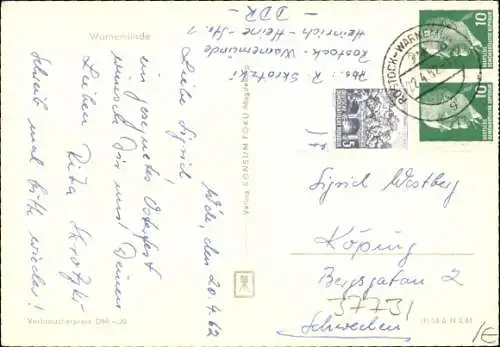 Warnemünde
Abs.: R. Skrotzki
Rostock - Warnemünde
Heinrich - Heine - Str. 1
- DDR -
Wde, den 20.4.62
Liebe Sigrid!
ein gesegnetes Osterfest
wünscht Dir und Deinen
Lieben Rita Skrotzki
Schreib mal bitte wieder!
Verlag KONSUM FOKU Magdeburg
Verbraucherpreis DM -,20
ROSTOCK-WARNEMÜNDE
22.4.62
10
10
5
Sigrid Westberg
Köping
Bergsgatan 2
37731
Schweden
/E